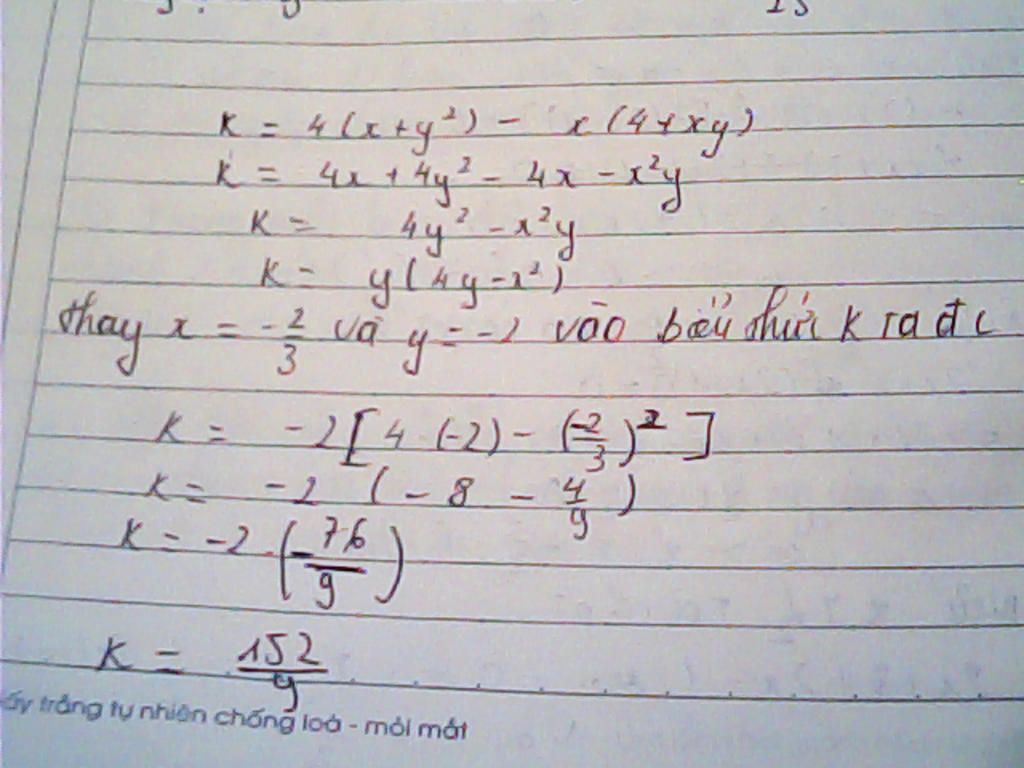 15
K = 4(x+y²) - x(4+xy)
K = 4x + 4y² - 4x - x²y
K = 4y² - x²y
K = y(4y-x²)
thay x = -2/3 và y = -2 vào biểu thức K ta đc
K = -2[4 (-2) - (-2/3)²]
K = -2 (-8 - 4/9)
K = -2 . (-76/9)
K = 152/9
ấy trắng tự nhiên chống loá - mỏi mắt